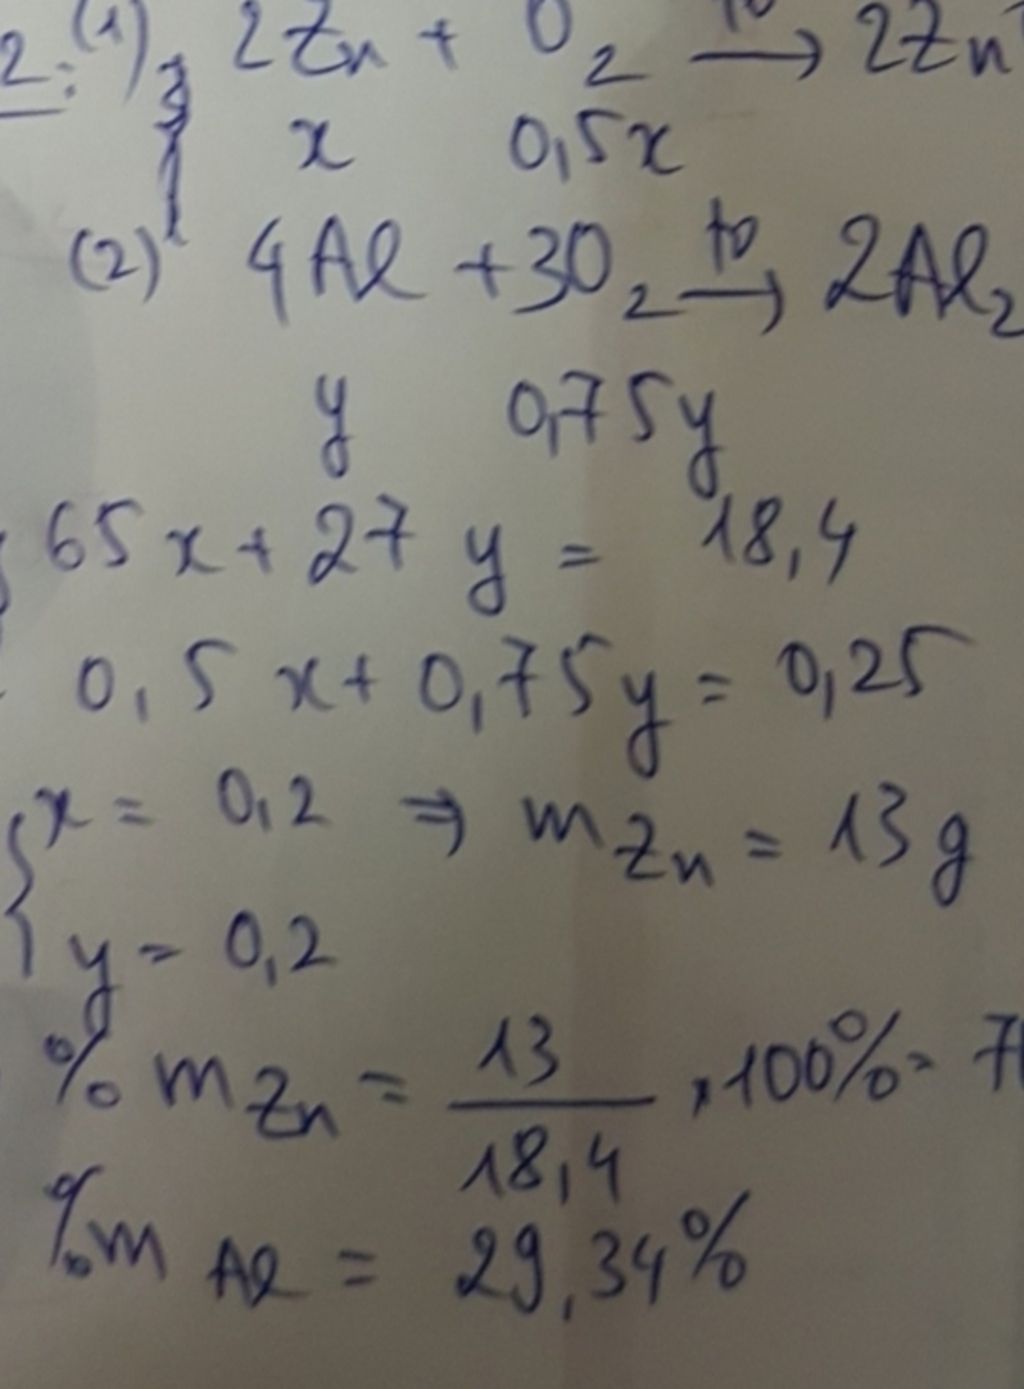 2: (1) 2Zn + O₂ →ᵗᵒ 2Zn
x 0,5x
(2) 4Al + 3O₂ →ᵗᵒ 2Al₂
y 0,75y
65x + 27y = 18,4
0,5x + 0,75y = 0,25
{ x = 0,2 ⇒ m Zn = 13g
y = 0,2
% m Zn = 13/18,4 × 100% = 7
% m Al = 29,34%